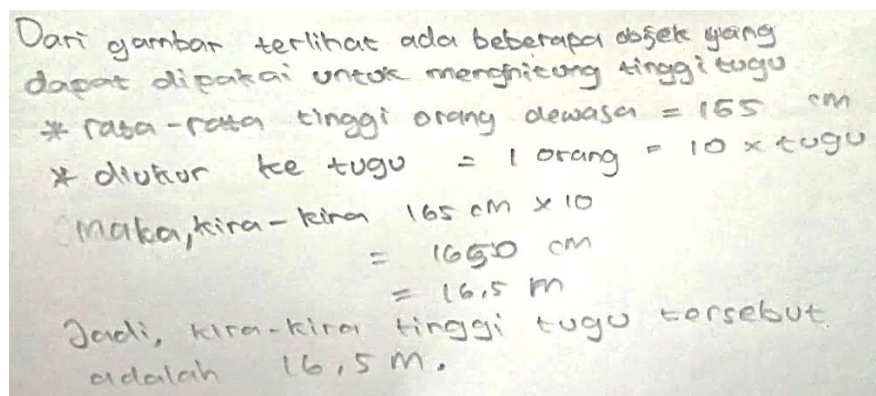 Dari gambar terlihat ada beberapa objek yang
dapat dipakai untuk menghitung tinggi tugu
* rata-rata tinggi orang dewasa = 165 cm
* diukur ke tugu = 1 orang = 10 x tugu
Maka, kira-kira 165 cm x 10
= 1650 cm
= 16,5 m
Jadi, kira-kira tinggi tugu tersebut
adalah 16,5 m.